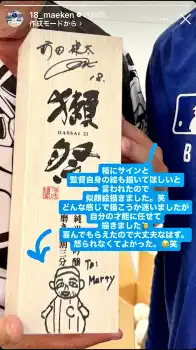 18_maeken
作成モードから >
前田健太
18.
獺祭
DASSAI 23
箱にサインと
監督自身の絵も描いてほしいと
言われたので
似顔絵描きました。笑
どんな感じで描こうか迷いましたが
自分の才能に任せて
描きました
喜んでもらえたので大丈夫なはず。
怒られなくてよかった。😂笑
To: Marty